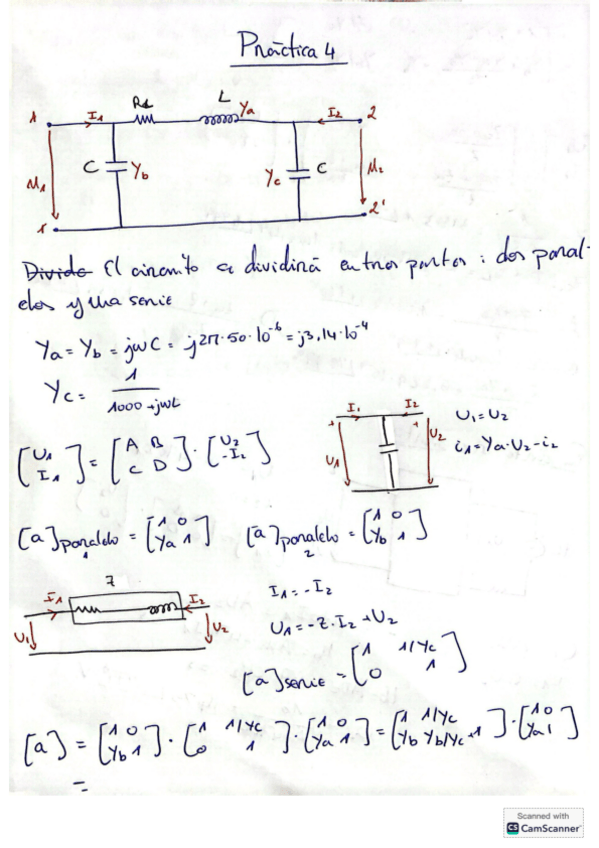 Práctica 4
R1 L Ya
1 I1 I2 2
C Yb Yc C
M1 M2
1' 2'
Divide El circuito se dividirá en tres partes : dos paral-
elos y una serie
Ya = Yb = jwC = j2π·50·10^-6 = j3,14·10^-4
Yc = 1 / 1000 + jwL
I1 I2
U1 U2
U1 = U2
i1 = Ya·U2 - i2
[U1 I1] = [A B C D] · [U2 -I2]
[a]paralelo 1 = [1 0 Ya 1] [a]paralelo 2 = [1 0 Yb 1]
Z
I1 I2
U1 U2
I1 = -I2
U1 = -Z·I2 + U2
[a]serie = [1 1/Yc 0 1]
[a] = [1 0 Yb 1] · [1 1/Yc 0 1] · [1 0 Ya 1] = [1 1/Yc Yb Yb/Yc+1] · [1 0 Ya 1]
=
Scanned with
CS CamScanner